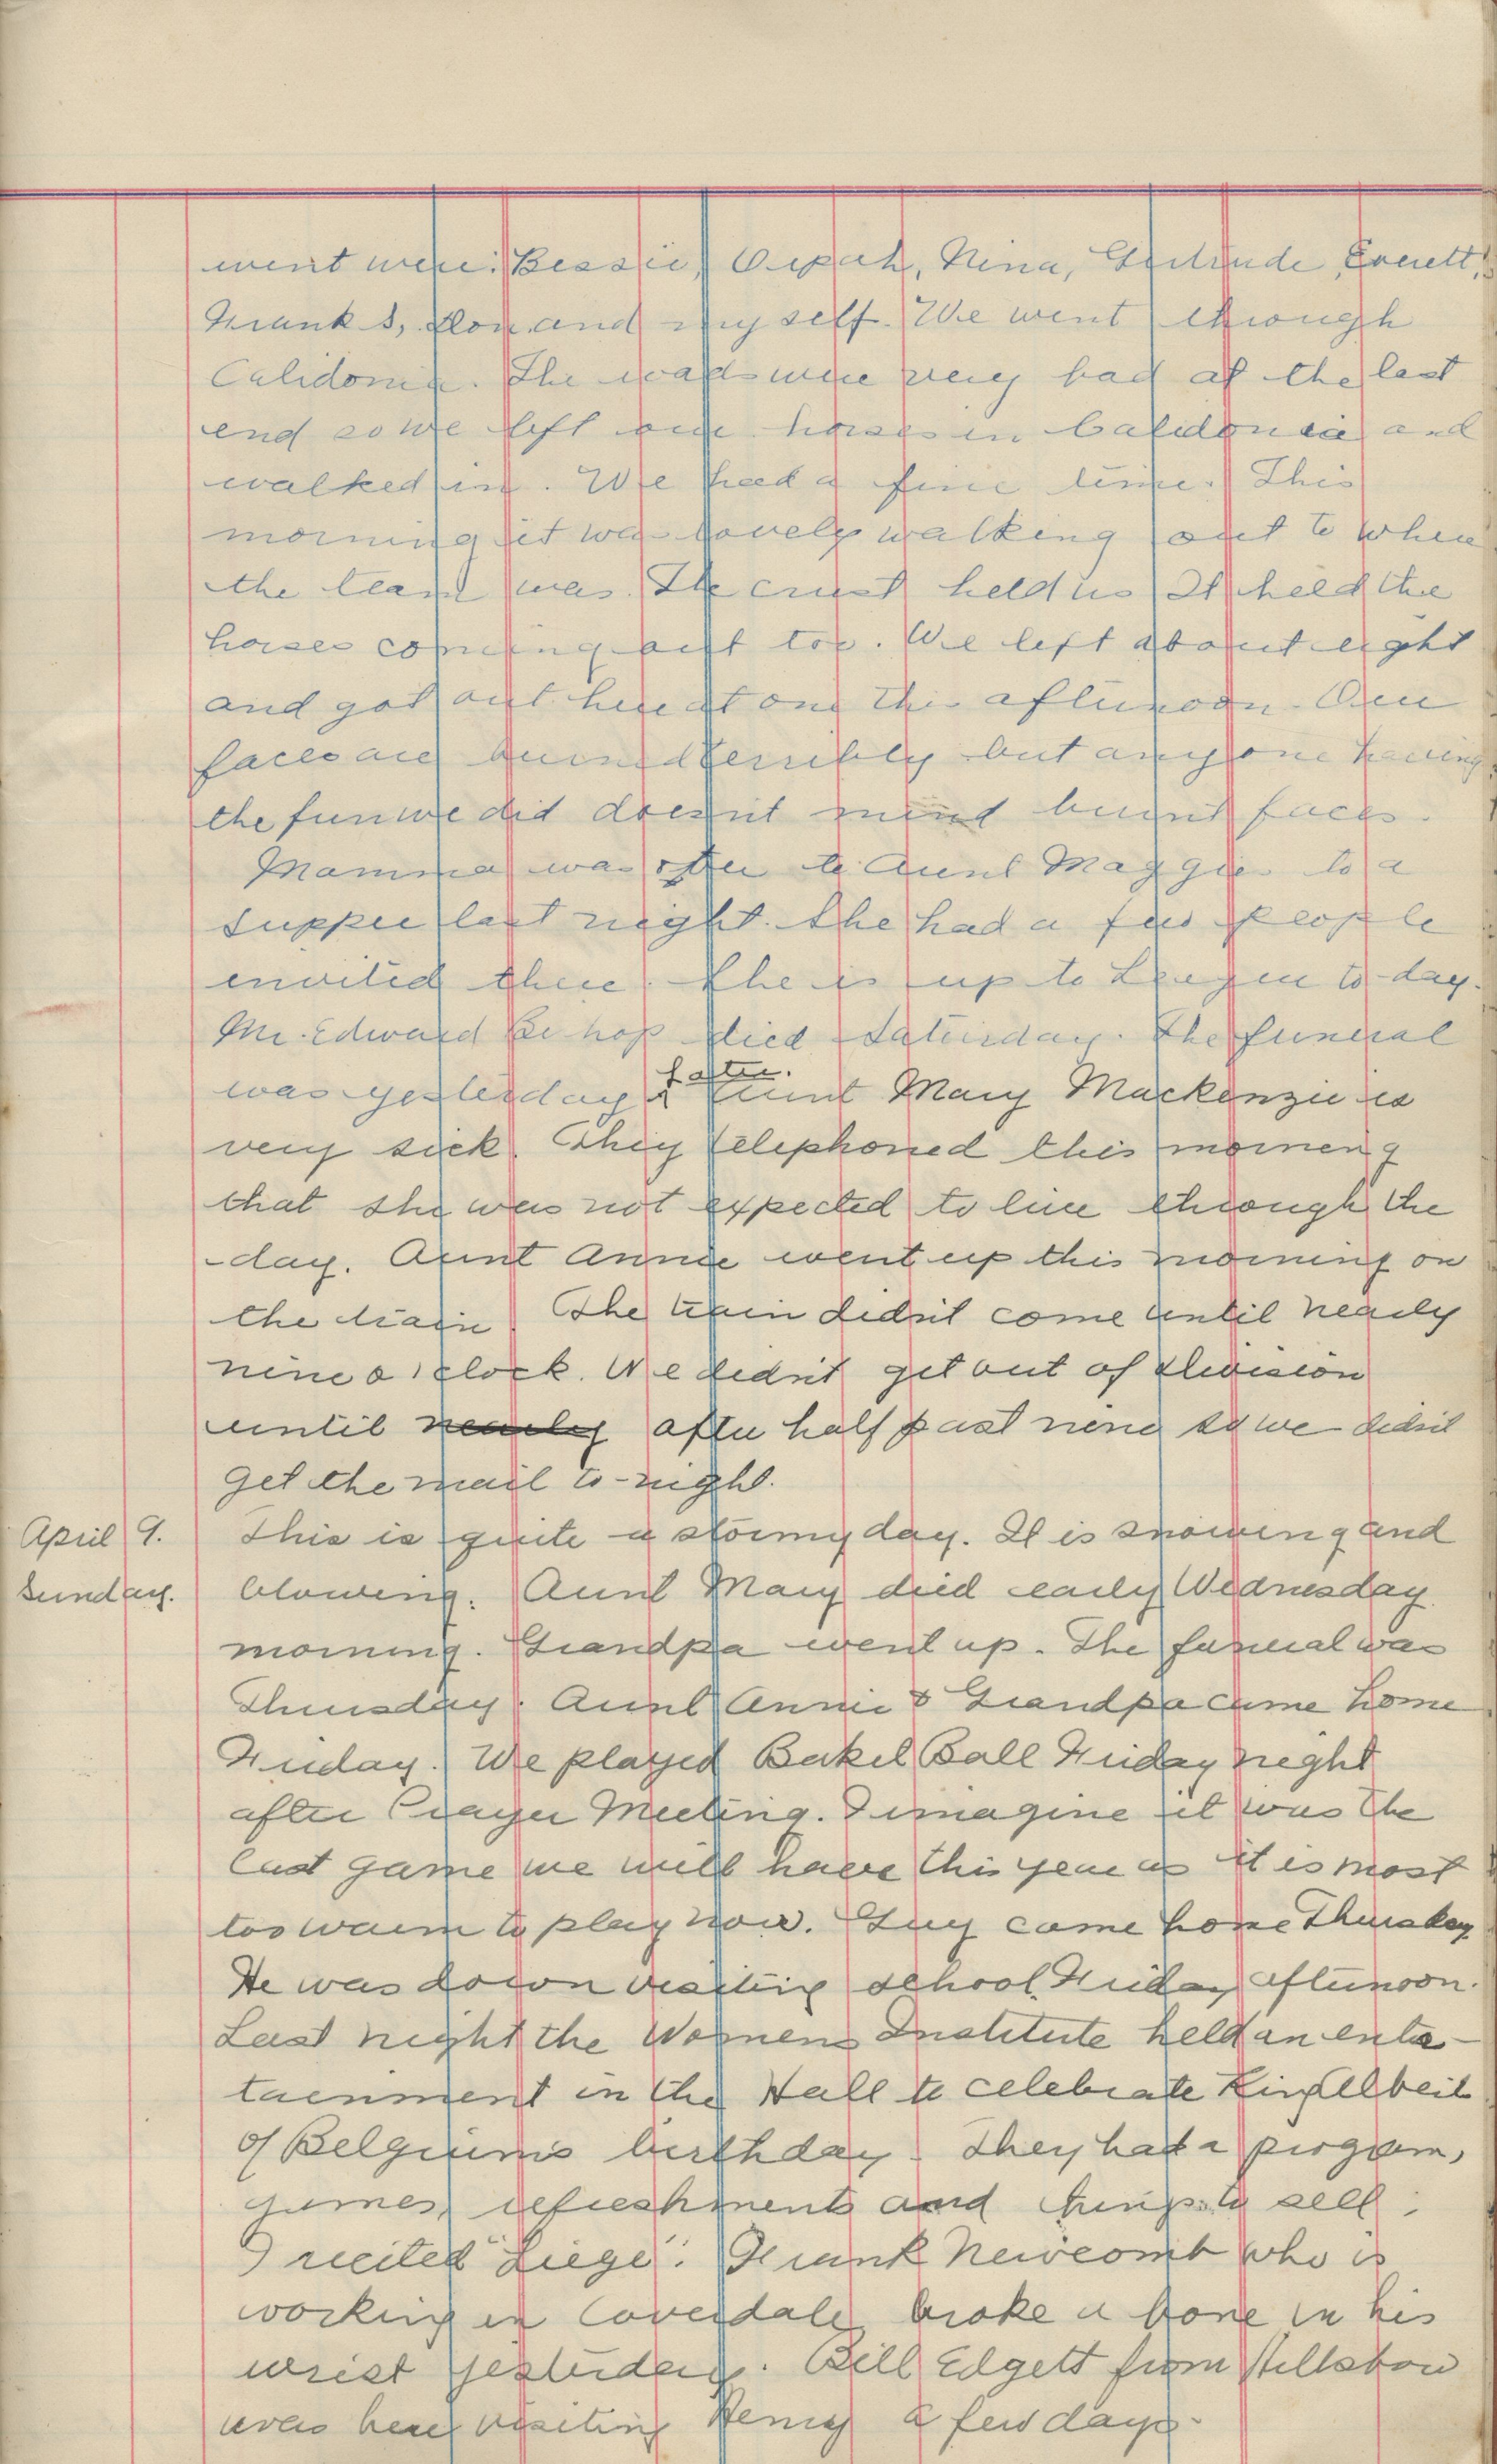 went were: Bessie, Orpah, Nina, Gertrude, Everett,
Frank S, Don and myself. We went through
Calidonia. The roads were very bad at the last
end so we left our horses in Calidonia and
walked in. We had a fine time. This
morning it was lovely walking out to where
the team was. The crust held us. It held the
horses coming out too. We left about eight
and got out here at one this afternoon. Our
faces are burned terribly but anyone having
the fun we did doesn't mind burnt faces.
Mamma was over to Aunt Maggies to a
supper last night. She had a few people
envited there. She is up to to-day.
Mr. Edward Bishop died Saturday. The funeral
was yesterday after. Aunt Mary Mackenzie is
very sick. They telephoned this morning
that she was not expected to live through the
day. Aunt Annie went up this morning on
the train. The train didn't come until nearly
nine o'clock. We didn't get out of Division
until nearly after half past nine so we didn't
get the mail to-night.
April 9. This is quite a stormy day. It is snowing and
Sunday. blowing. Aunt Mary died early Wednesday
morning. Grandpa went up. The funeral was
Thursday. Aunt Annie & Grandpa came home
Friday. We played Basket Ball Friday night
after Prayer Meeting. I imagine it was the
last game we will have this year as it is most
too warm to play now. Guy came home Thursday
He was down visiting school Friday afternoon.
Last night the Womens Institute held an enter-
tainment in the Hall to celebrate King Albert
of Belgium's birthday. They had a program,
games, refreshments and things to sell.
I recited "Liege". Frank Newcomb who is
working in Coverdale broke a bone in his
wrist yesterday. Bill Edgett from Hillsboro
was here visiting Henry a few days.